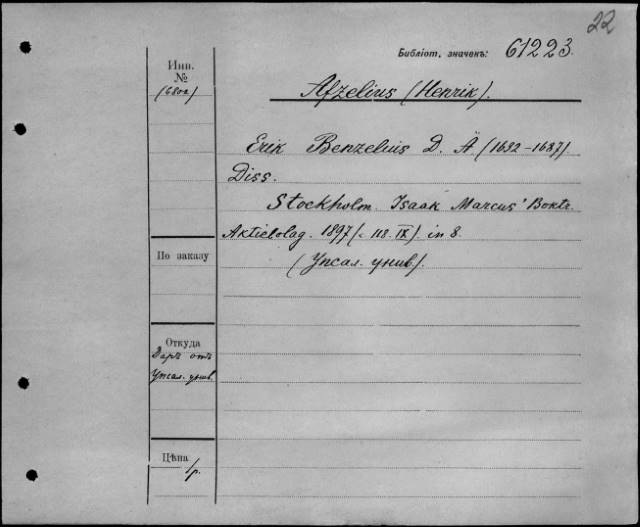 22
Библіот. значенъ: 61223.
Инв.
№
(6802)
Afzelius (Henrik).
Erik Benzelius D. Ä. (1632–1687).
Diss.
Stockholm. Isaak Marcus' Boktr.
Aktiebolag. 1897 (– 118. IX). in 8.
(Упсал. унив.).
По заказу
Откуда
Даръ отъ
Упсал. унив.
Цѣна
/р.